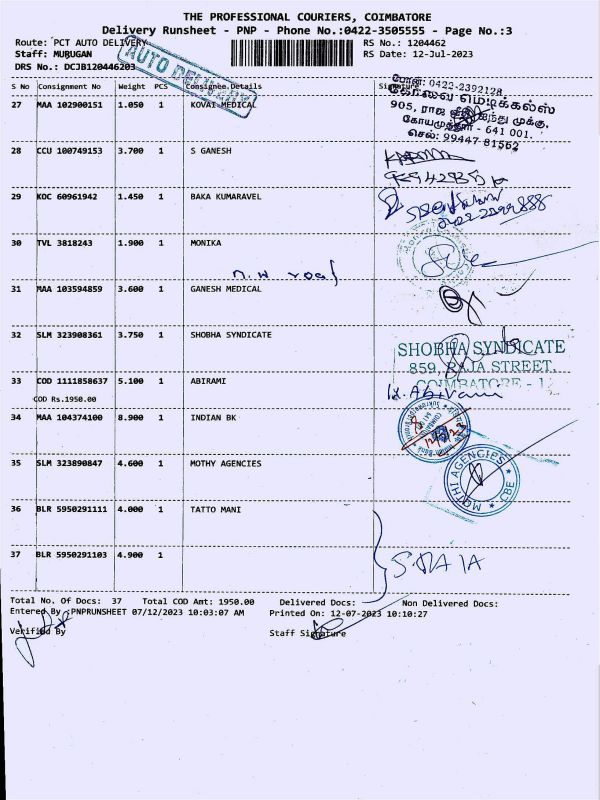 THE PROFESSIONAL COURIERS, COIMBATORE
Delivery Runsheet - PNP - Phone No.:0422-3505555 - Page No.:3
Route: PCT AUTO DELIVERY RS No.: 1204462
Staff: MURUGAN RS Date: 12-Jul-2023
DRS No.: DCJB120446203
AUTO DELIVERY
S No Consignment No Weight PCS Consignee Details Signature
போன்: 0422-2392128
கோவை மெடிக்கல்ஸ்
27 MAA 102900151 1.050 1 KOVAI MEDICAL
905, ராஜ முக்கு,
கோயமுத்தூர் - 641 001.
செல்: 99447 81562
28 CCU 100749153 3.700 1 S GANESH
29 KOC 60961942 1.450 1 BAKA KUMARAVEL
30 TVL 3818243 1.900 1 MONIKA
31 MAA 103594859 3.600 1 GANESH MEDICAL
32 SLM 323908361 3.750 1 SHOBHA SYNDICATE
SHOBHA SYNDICATE
859, RAJA STREET,
COIMBATORE - 1
33 COD 1111858637 5.100 1 ABIRAMI
COD Rs.1950.00
34 MAA 104374100 8.900 1 INDIAN BK
12/7/23
35 SLM 323890847 4.600 1 MOTHY AGENCIES
MOTHI AGENCIES
CBE
36 BLR 5950291111 4.000 1 TATTO MANI
37 BLR 5950291103 4.900 1
Total No. Of Docs: 37 Total COD Amt: 1950.00 Delivered Docs: Non Delivered Docs:
Entered By :PNPRUNSHEET 07/12/2023 10:03:07 AM Printed On: 12-07-2023 10:10:27
Verified By Staff Signature